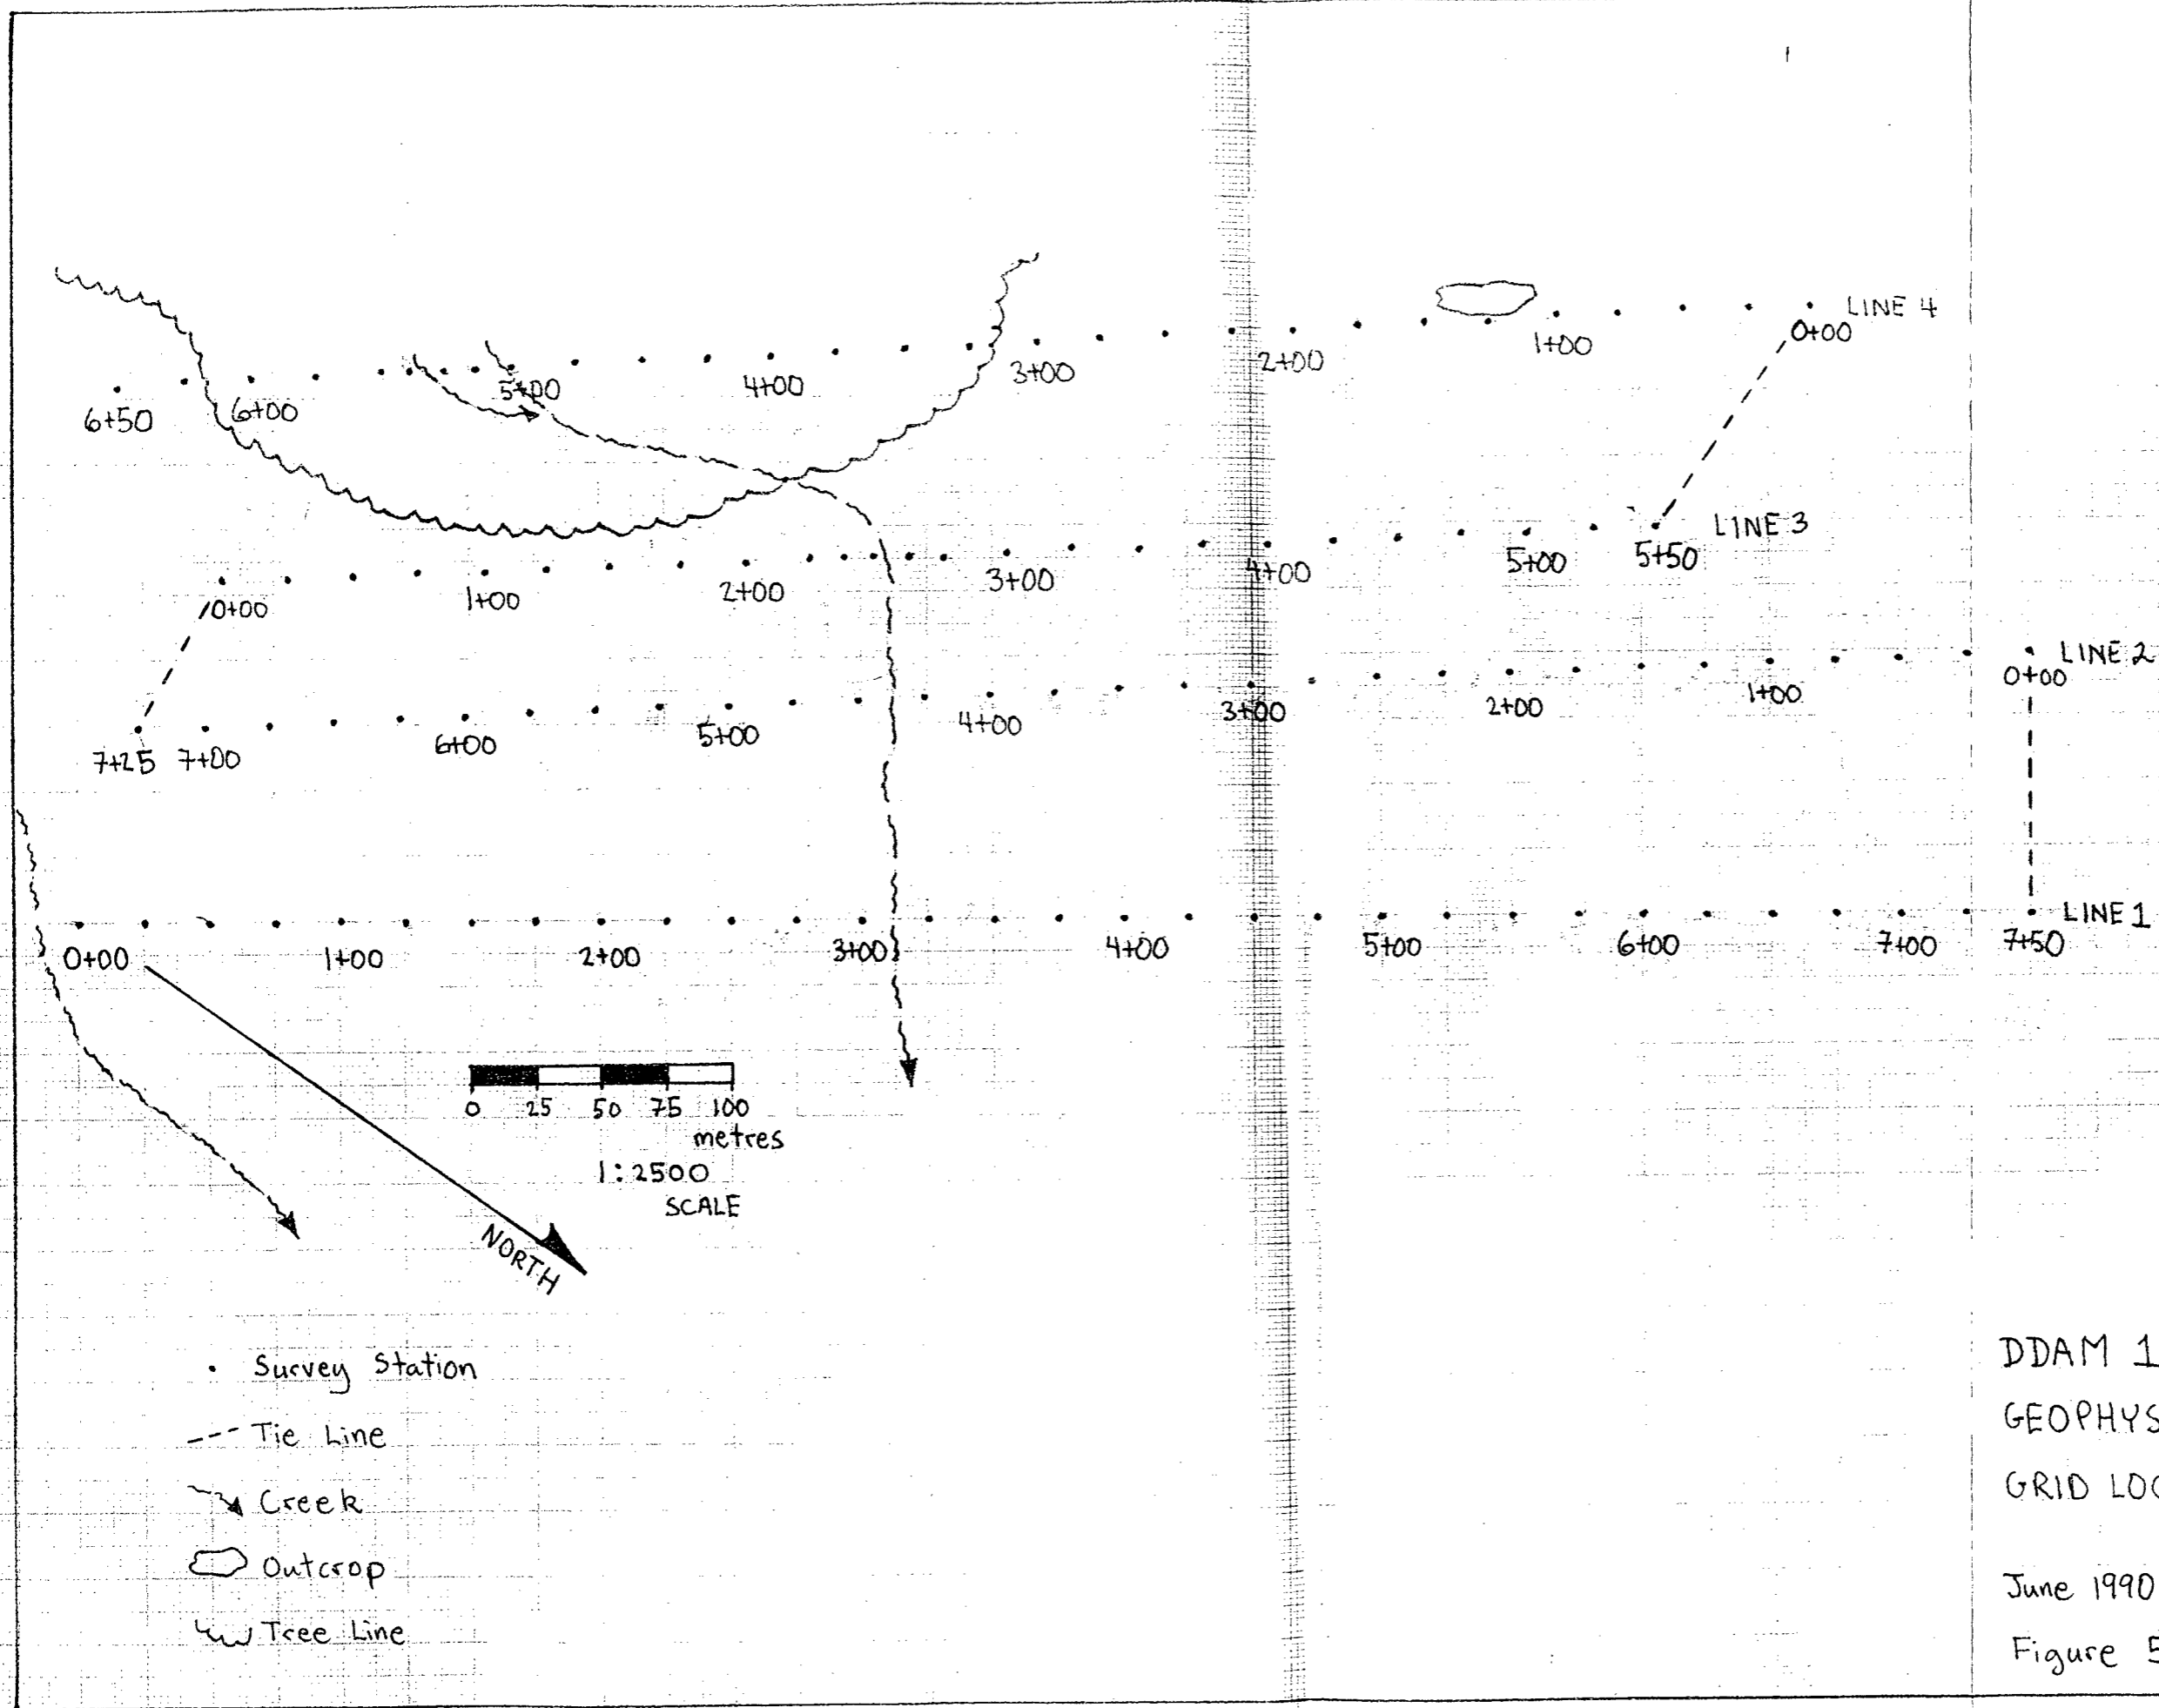 LINE 4
0+00
1+00
2+00
3+00
4+00
5+00
6+00
6+50
LINE 3
0+00
1+00
2+00
3+00
4+00
5+00
5+50
LINE 2
0+00
1+00
2+00
3+00
4+00
5+00
6+00
7+00
7+25
LINE 1
0+00
1+00
2+00
3+00
4+00
5+00
6+00
7+00
7+50
0 25 50 75 100
metres
1:2500
SCALE
NORTH
Survey Station
Tie Line
Creek
Outcrop
Tree Line
DDAM 1
GEOPHYS
GRID LOC
June 1990
Figure 5